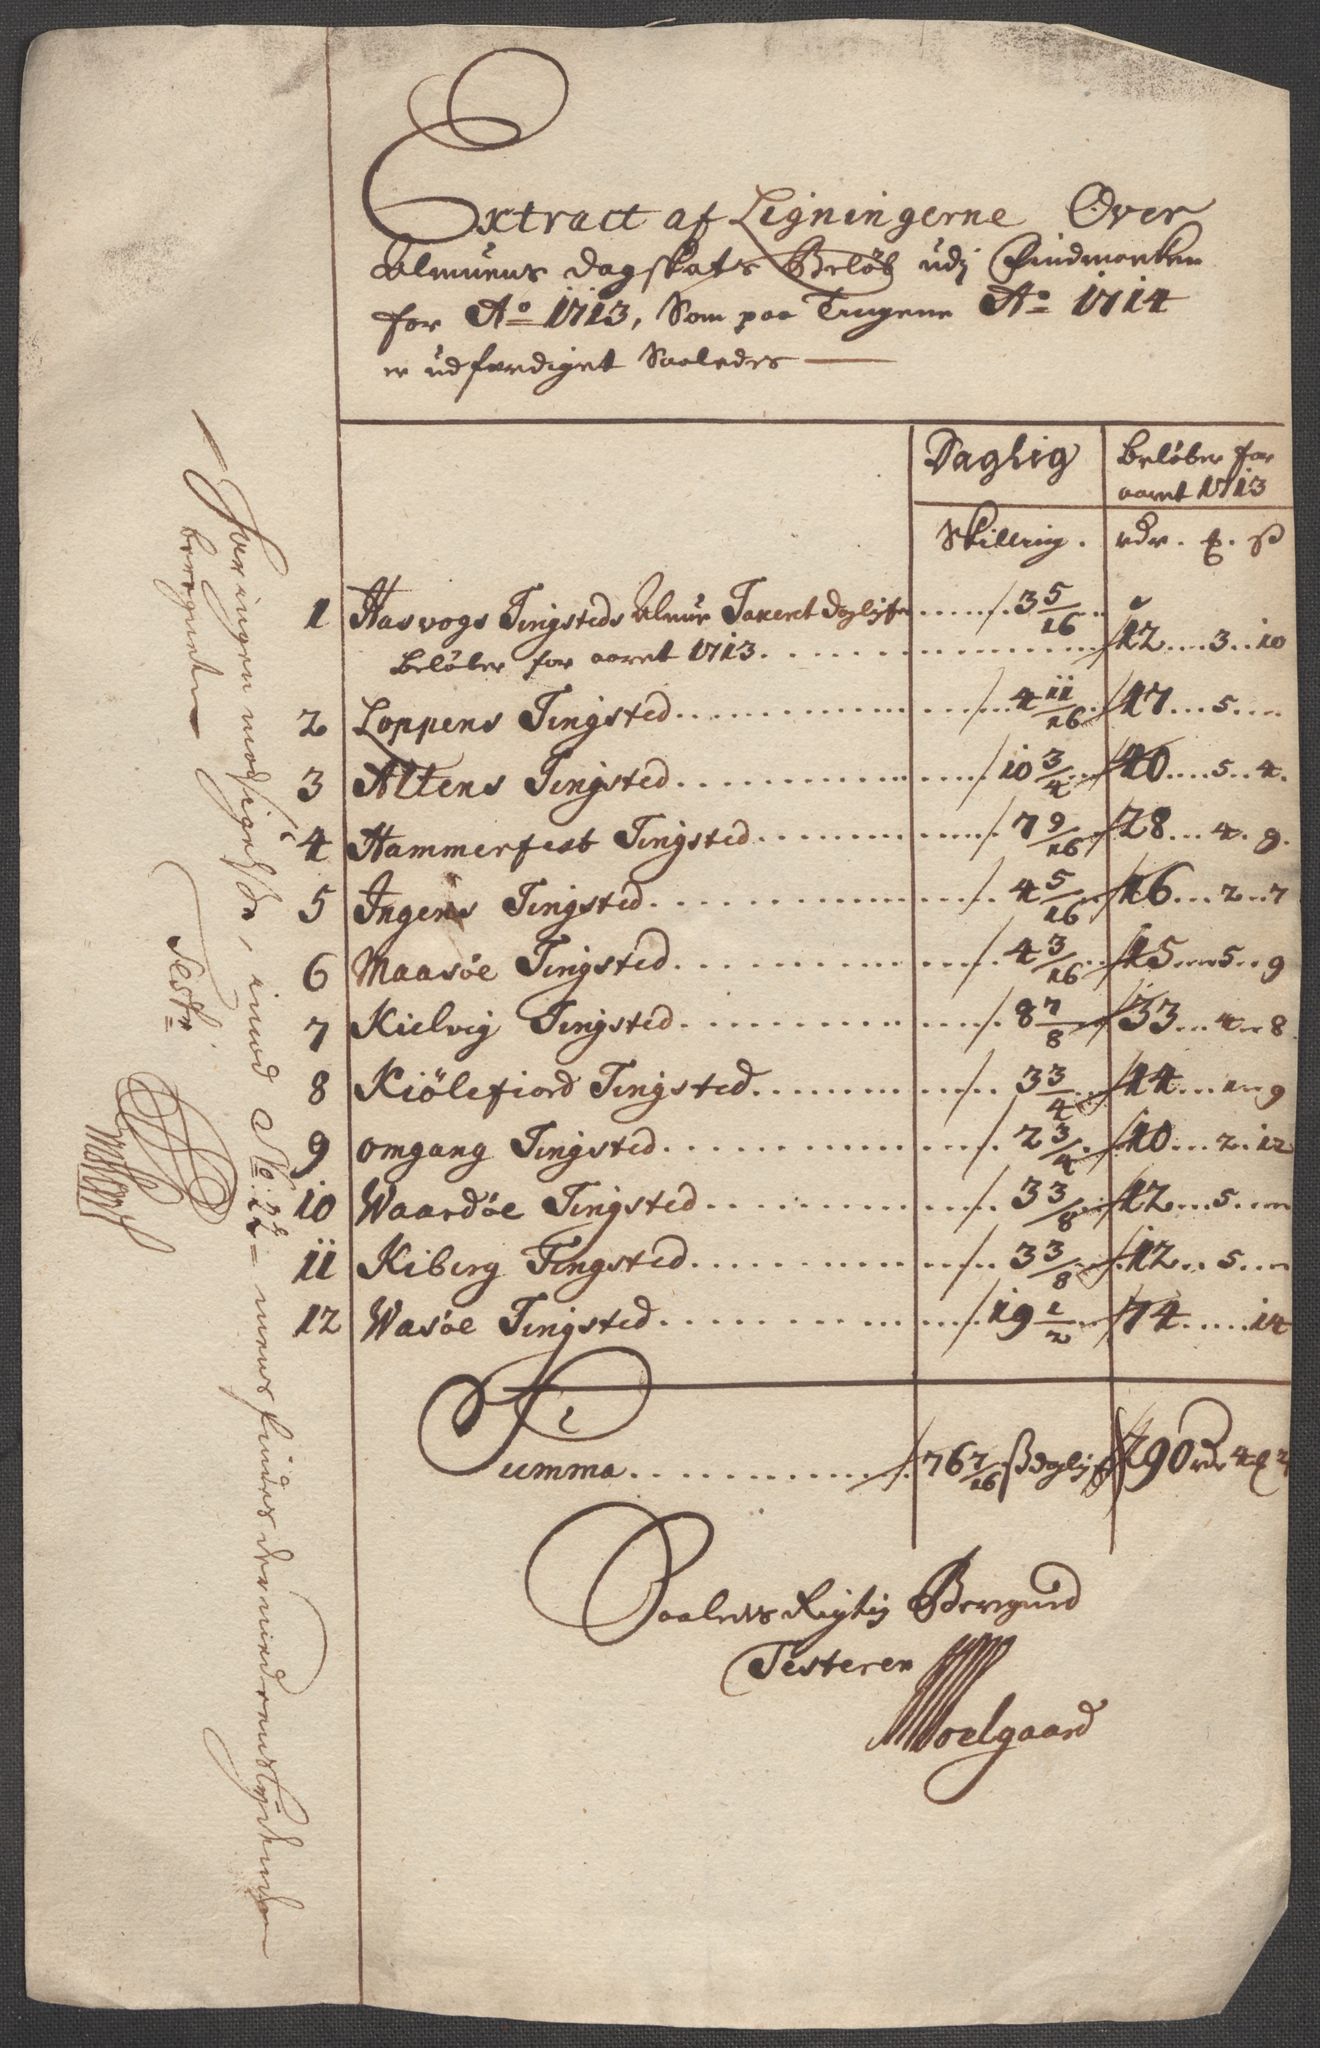 Extract af Ligningerne Over
Almuens dagskats Beløb udj Findmarken
for Aº 1713, Som paa Tingene Aº 1714
er udfærdiget Saaledes
Daglig
Beløber for
aaret 1713
Skilling. rdr. ȹ. ß
1 Hasvogs Tingsteds Almue Taxert daglig 3 5/16
Beløber for aaret 1713. 12 .. 3 .. 10
2 Loppens Tingsted 4 11/16 17 .. 5 ..
3 Altens Tingsted 10 3/4 40 .. 5 .. 4.
4 Hammerfest Tingsted 7 9/16 28 .. 4 .. 9.
5 Ingens Tingsted 4 5/16 16 .. 2 .. 7
6 Maasøe Tingsted 4 3/16 15 .. 5 .. 9
7 Kielvig Tingsted 8 7/8 33 .. 4 .. 8
8 Kiölefiord Tingsted 3 3/4 14 .. 1 .. 9
9 omgang Tingsted 2 3/4 10 .. 2 .. 12
10 Waardøe Tingsted 3 3/8 12 .. 5 ..
11 Kiberg Tingsted 3 3/8 12 .. 5 ..
12 Wasöe Tingsted 19 1/2 74 .. 14
Summa 76 7/16 ß daglig 290 rdr 4 ȹ 2
Saaledes Rigtig Beregned
Testerer
Noelgaard
For ingen modsigelse, imod No: 22 = mens findes dermed eenstemmende
beregnet
Test: